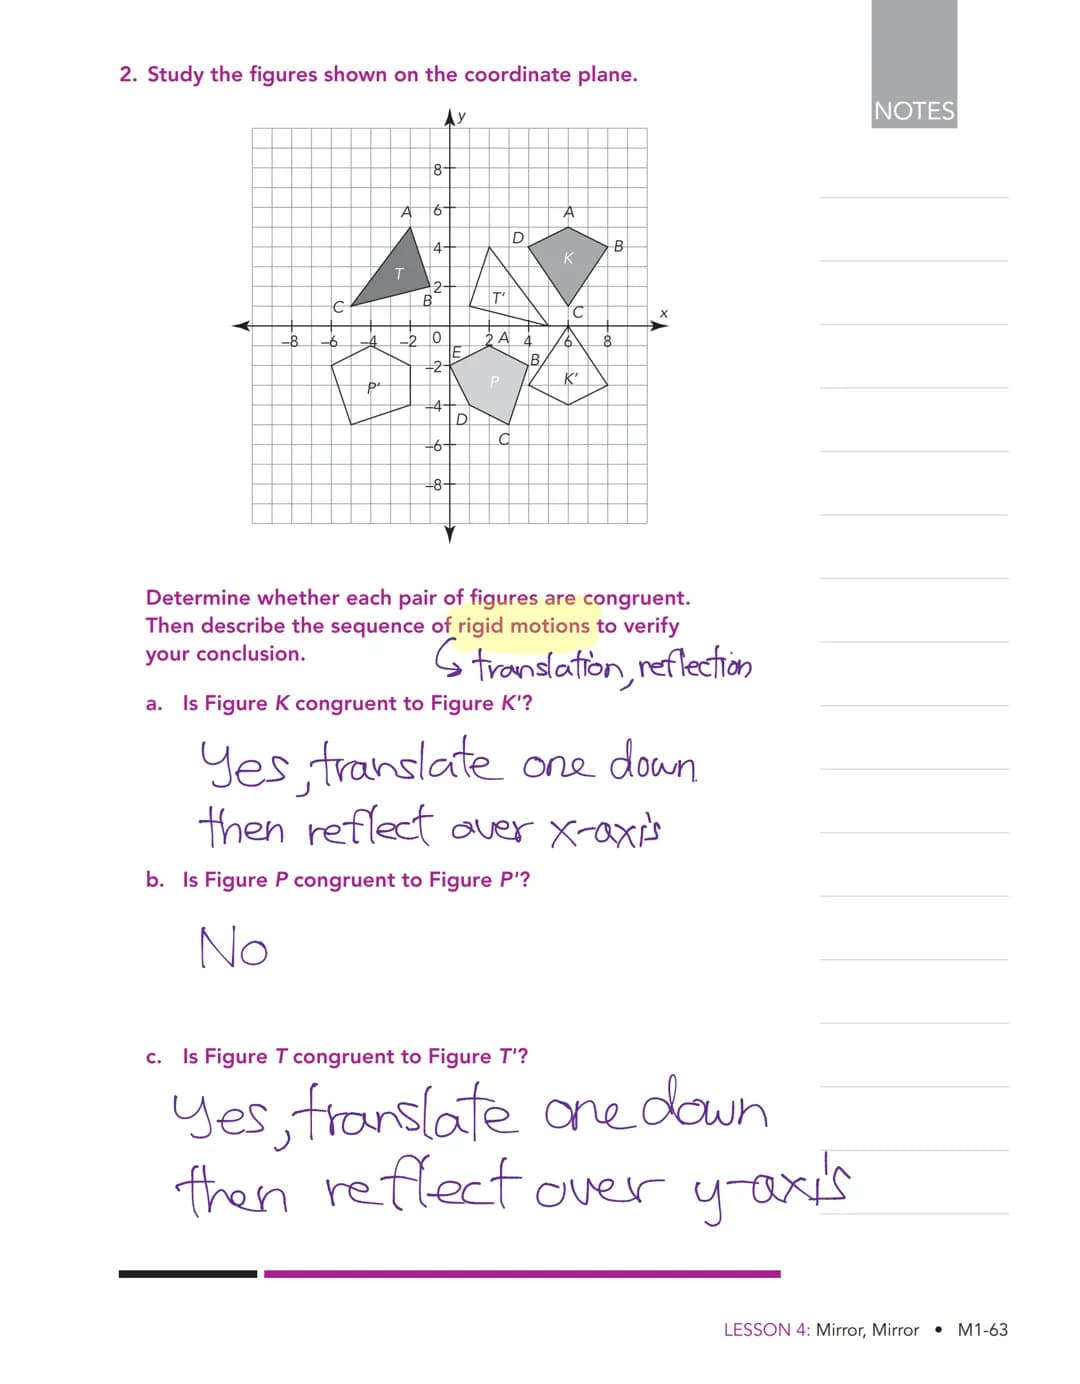 2. Study the figures shown on the coordinate plane.
NOTES
y
8
A 6 A
D
4 B
T K
2
C B T' C
x
–8 –6 –4 –2 0 2 A 4 6 8
E B
–2
P' P K'
–4
D
C
–6
–8
Determine whether each pair of figures are congruent.
Then describe the sequence of rigid motions to verify
your conclusion.
↳ translation, reflection
a. Is Figure K congruent to Figure K'?
Yes, translate one down
then reflect over x-axis
b. Is Figure P congruent to Figure P'?
No
c. Is Figure T congruent to Figure T'?
Yes, translate one down
then reflect over y-axis
LESSON 4: Mirror, Mirror • M1-63